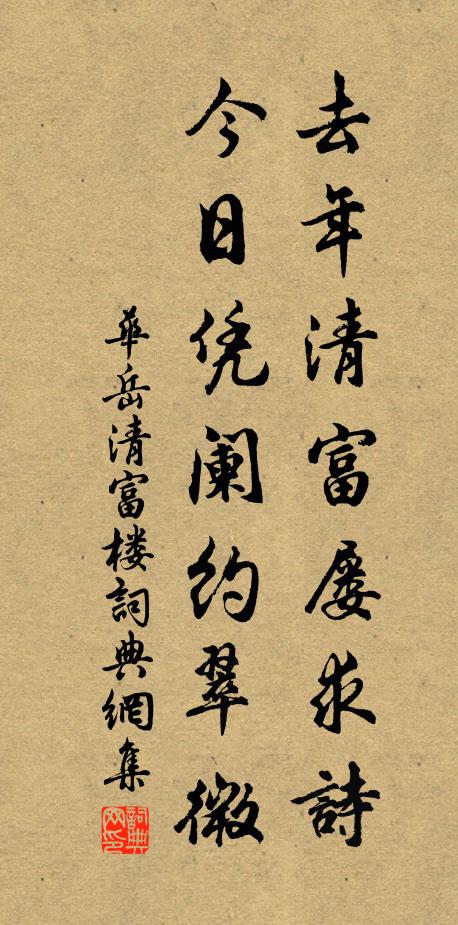 去年清富屡求詩
今日凭阑约翠微
華岳清富楼詞典網集
詞典网印